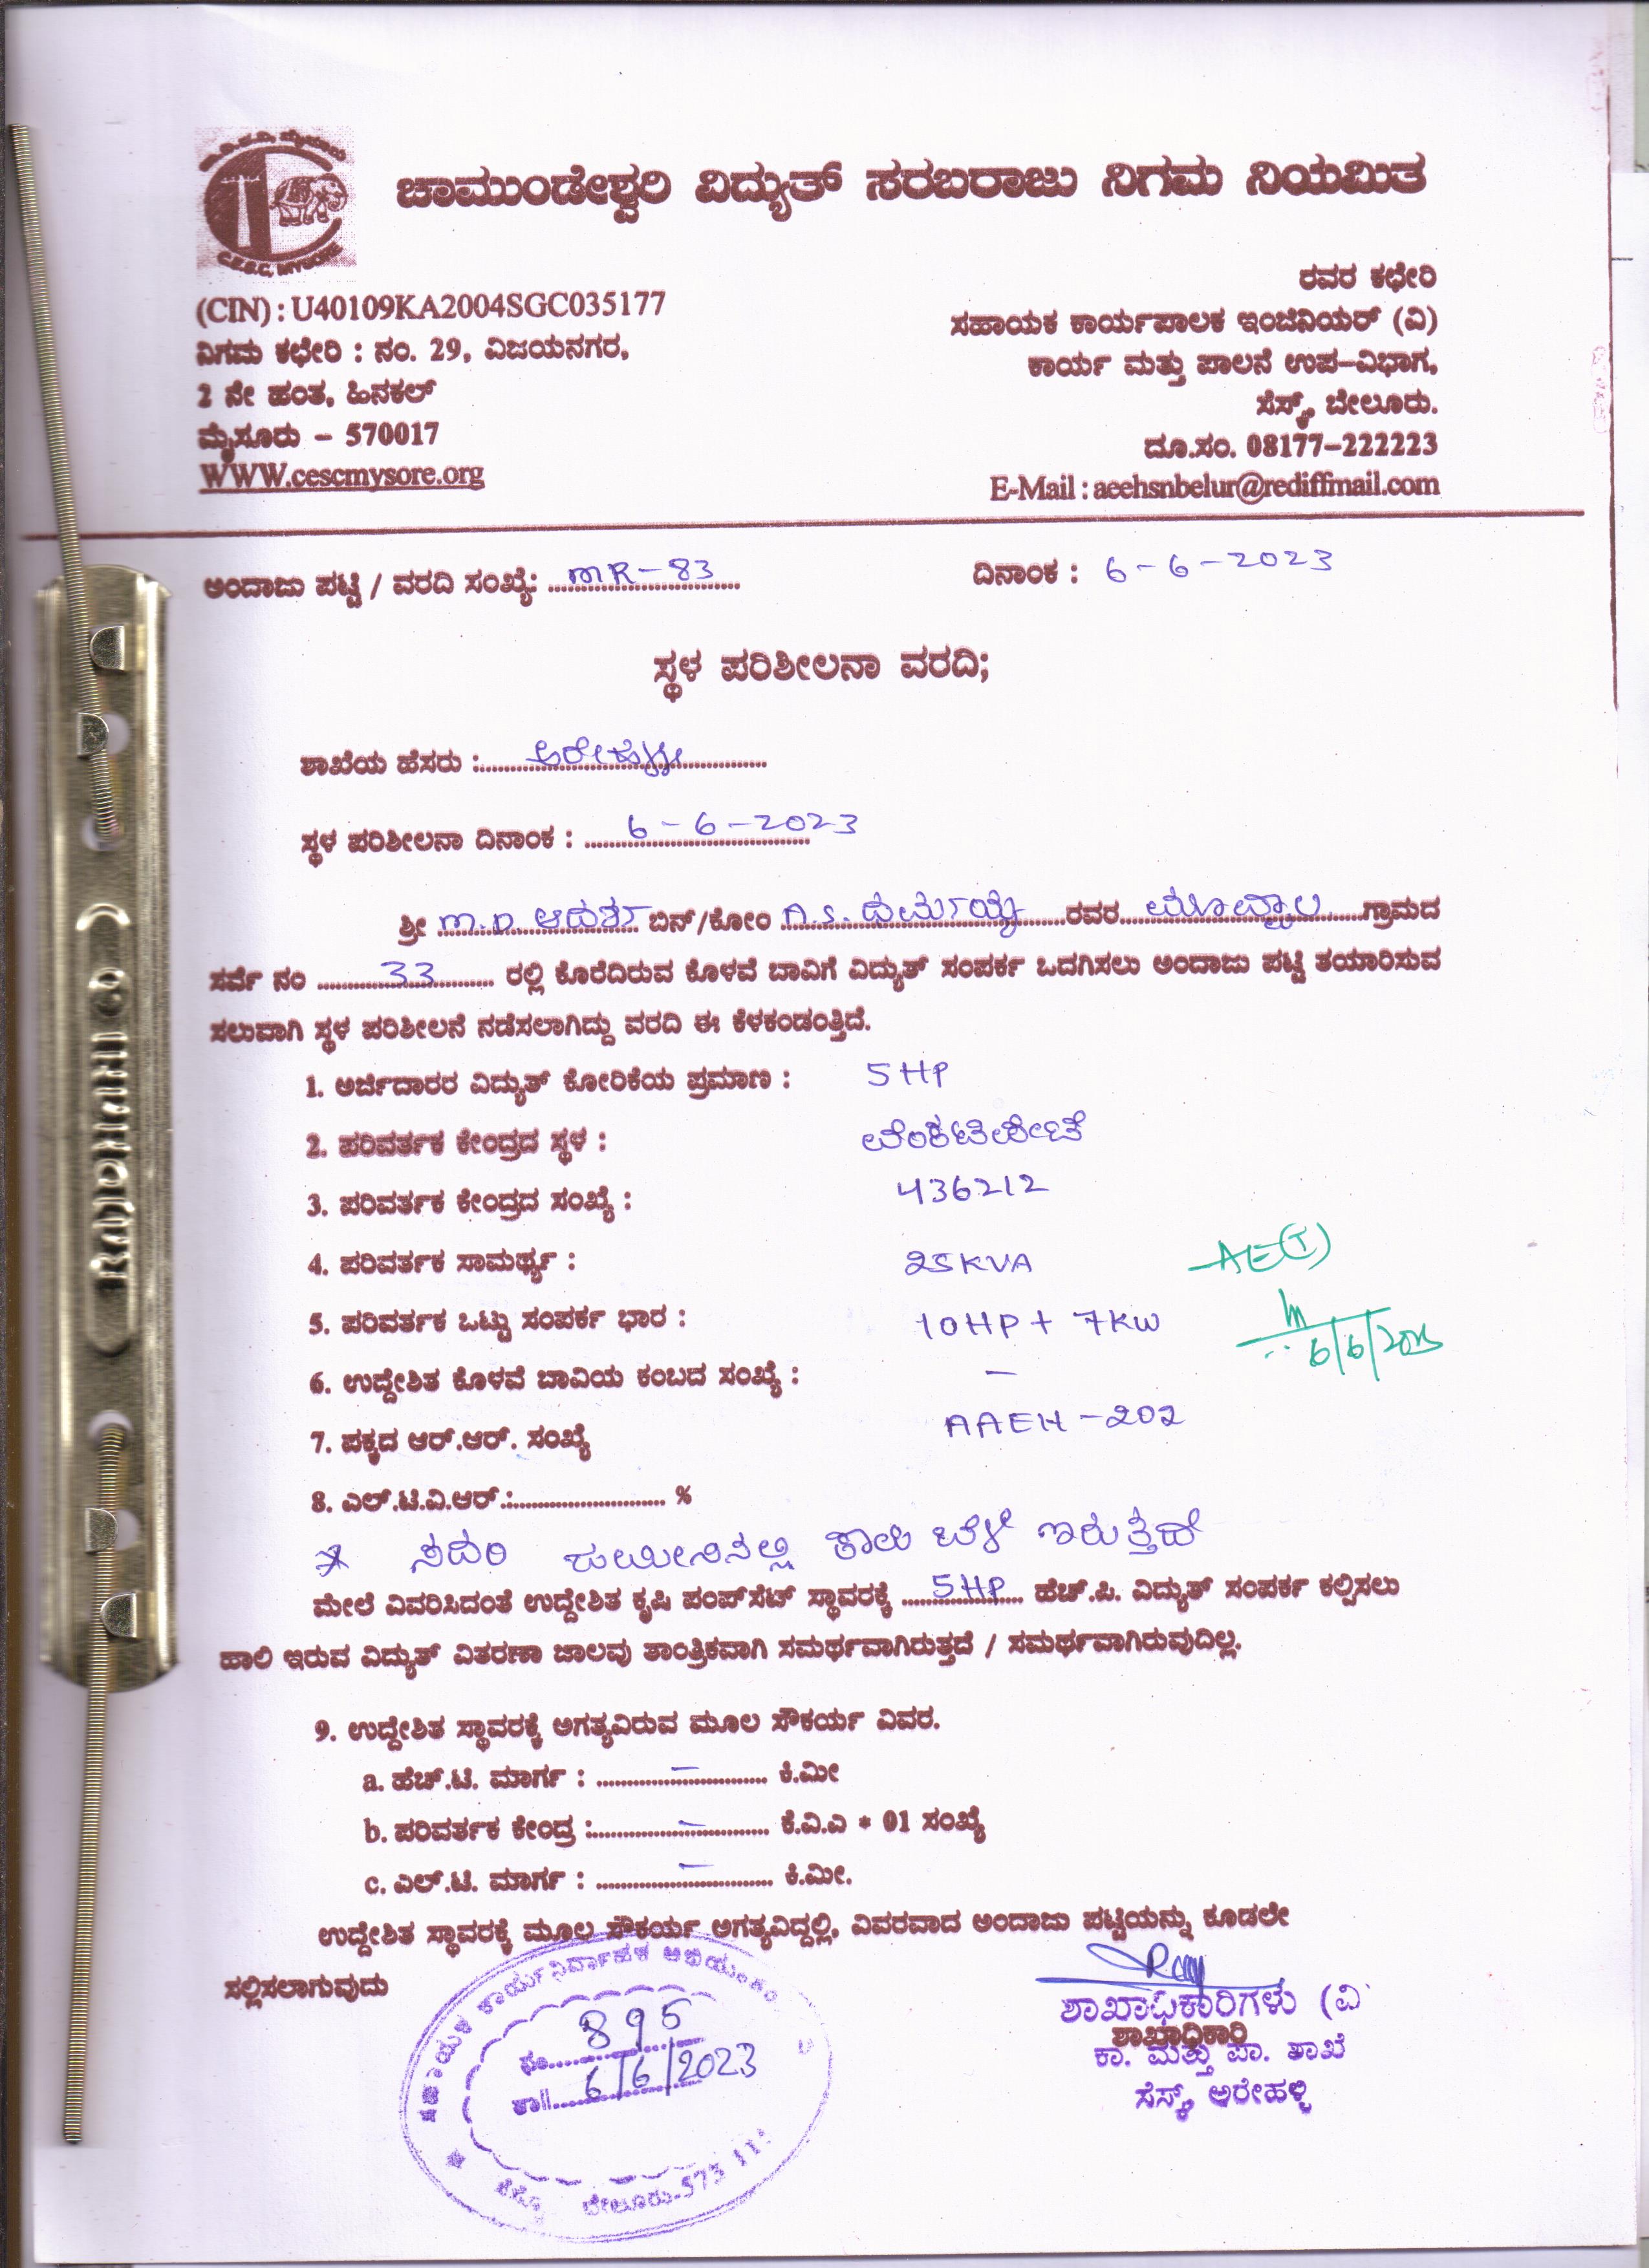 ಚಾಮುಂಡೇಶ್ವರಿ ವಿದ್ಯುತ್ ಸರಬರಾಜು ನಿಗಮ ನಿಯಮಿತ
C.E.S.C. MYSORE
(CIN) : U40109KA2004SGC035177
ನಿಗಮ ಕಛೇರಿ : ನಂ. 29, ವಿಜಯನಗರ,
2 ನೇ ಹಂತ, ಹಿನಕಲ್
ಮೈಸೂರು – 570017
WWW.cescmysore.org
ರವರ ಕಛೇರಿ
ಸಹಾಯಕ ಕಾರ್ಯಪಾಲಕ ಇಂಜಿನಿಯರ್ (ವಿ)
ಕಾರ್ಯ ಮತ್ತು ಪಾಲನೆ ಉಪ–ವಿಭಾಗ,
ಸೆಸ್ಕ್, ಬೇಲೂರು.
ದೂ.ಸಂ. 08177–222223
E-Mail : aeehsnbelur@rediffmail.com
ಅಂದಾಜು ಪಟ್ಟಿ / ವರದಿ ಸಂಖ್ಯೆ: MR-83 ದಿನಾಂಕ : 6-6-2023
ಸ್ಥಳ ಪರಿಶೀಲನಾ ವರದಿ;
ಶಾಖೆಯ ಹೆಸರು : ಅರೇಹಳ್ಳಿ
ಸ್ಥಳ ಪರಿಶೀಲನಾ ದಿನಾಂಕ : 6-6-2023
ಶ್ರೀ M.D. ಆದರ್ಶ ಬಿನ್/ಕೋಂ A.S. ಧರ್ಮಯ್ಯ ರವರ ಗ್ರಾಮದ
ಸರ್ವೆ ನಂ 33 ರಲ್ಲಿ ಕೊರೆದಿರುವ ಕೊಳವೆ ಬಾವಿಗೆ ವಿದ್ಯುತ್ ಸಂಪರ್ಕ ಒದಗಿಸಲು ಅಂದಾಜು ಪಟ್ಟಿ ತಯಾರಿಸುವ
ಸಲುವಾಗಿ ಸ್ಥಳ ಪರಿಶೀಲನೆ ನಡೆಸಲಾಗಿದ್ದು ವರದಿ ಈ ಕೆಳಕಂಡಂತ್ತಿದೆ.
1. ಅರ್ಜಿದಾರರ ವಿದ್ಯುತ್ ಕೋರಿಕೆಯ ಪ್ರಮಾಣ : 5HP
2. ಪರಿವರ್ತಕ ಕೇಂದ್ರದ ಸ್ಥಳ :
3. ಪರಿವರ್ತಕ ಕೇಂದ್ರದ ಸಂಖ್ಯೆ : 436212
4. ಪರಿವರ್ತಕ ಸಾಮರ್ಥ್ಯ : 25KVA
AE(T)
5. ಪರಿವರ್ತಕ ಒಟ್ಟು ಸಂಪರ್ಕ ಭಾರ : 10HP + 7KW
6/6/2023
6. ಉದ್ದೇಶಿತ ಕೊಳವೆ ಬಾವಿಯ ಕಂಬದ ಸಂಖ್ಯೆ : –
7. ಪಕ್ಕದ ಆರ್.ಆರ್. ಸಂಖ್ಯೆ AAEH-202
8. ಎಲ್.ಟಿ.ವಿ.ಆರ್.: %
* ಸದರಿ ಜಮೀನಿನಲ್ಲಿ ಕಾಫಿ ಬೆಳೆ ಇರುತ್ತದೆ
ಮೇಲೆ ವಿವರಿಸಿದಂತೆ ಉದ್ದೇಶಿತ ಕೃಷಿ ಪಂಪ್‌ಸೆಟ್ ಸ್ಥಾವರಕ್ಕೆ 5HP ಹೆಚ್.ಪಿ. ವಿದ್ಯುತ್ ಸಂಪರ್ಕ ಕಲ್ಪಿಸಲು
ಹಾಲಿ ಇರುವ ವಿದ್ಯುತ್ ವಿತರಣಾ ಜಾಲವು ತಾಂತ್ರಿಕವಾಗಿ ಸಮರ್ಥವಾಗಿರುತ್ತದೆ / ಸಮರ್ಥವಾಗಿರುವುದಿಲ್ಲ.
9. ಉದ್ದೇಶಿತ ಸ್ಥಾವರಕ್ಕೆ ಅಗತ್ಯವಿರುವ ಮೂಲ ಸೌಕರ್ಯ ವಿವರ.
a. ಹೆಚ್.ಟಿ. ಮಾರ್ಗ : – ಕಿ.ಮೀ
b. ಪರಿವರ್ತಕ ಕೇಂದ್ರ : – ಕೆ.ವಿ.ಎ * 01 ಸಂಖ್ಯೆ
c. ಎಲ್.ಟಿ. ಮಾರ್ಗ : – ಕಿ.ಮೀ.
ಉದ್ದೇಶಿತ ಸ್ಥಾವರಕ್ಕೆ ಮೂಲ ಸೌಕರ್ಯ ಅಗತ್ಯವಿದ್ದಲ್ಲಿ, ವಿವರವಾದ ಅಂದಾಜು ಪಟ್ಟಿಯನ್ನು ಕೂಡಲೇ
ಸಲ್ಲಿಸಲಾಗುವುದು
ಸಹಾಯಕ ಕಾರ್ಯನಿರ್ವಾಹಕ
895
6/6/2023
ಸೆಸ್ಕ್ ಬೇಲೂರು-573
ಶಾಖಾಧಿಕಾರಿಗಳು (ವಿ
ಶಾಖಾಧಿಕಾರಿ
ಕಾ. ಮತ್ತು ಪಾ. ಶಾಖೆ
ಸೆಸ್ಕ್, ಅರೇಹಳ್ಳಿ
Rapidani